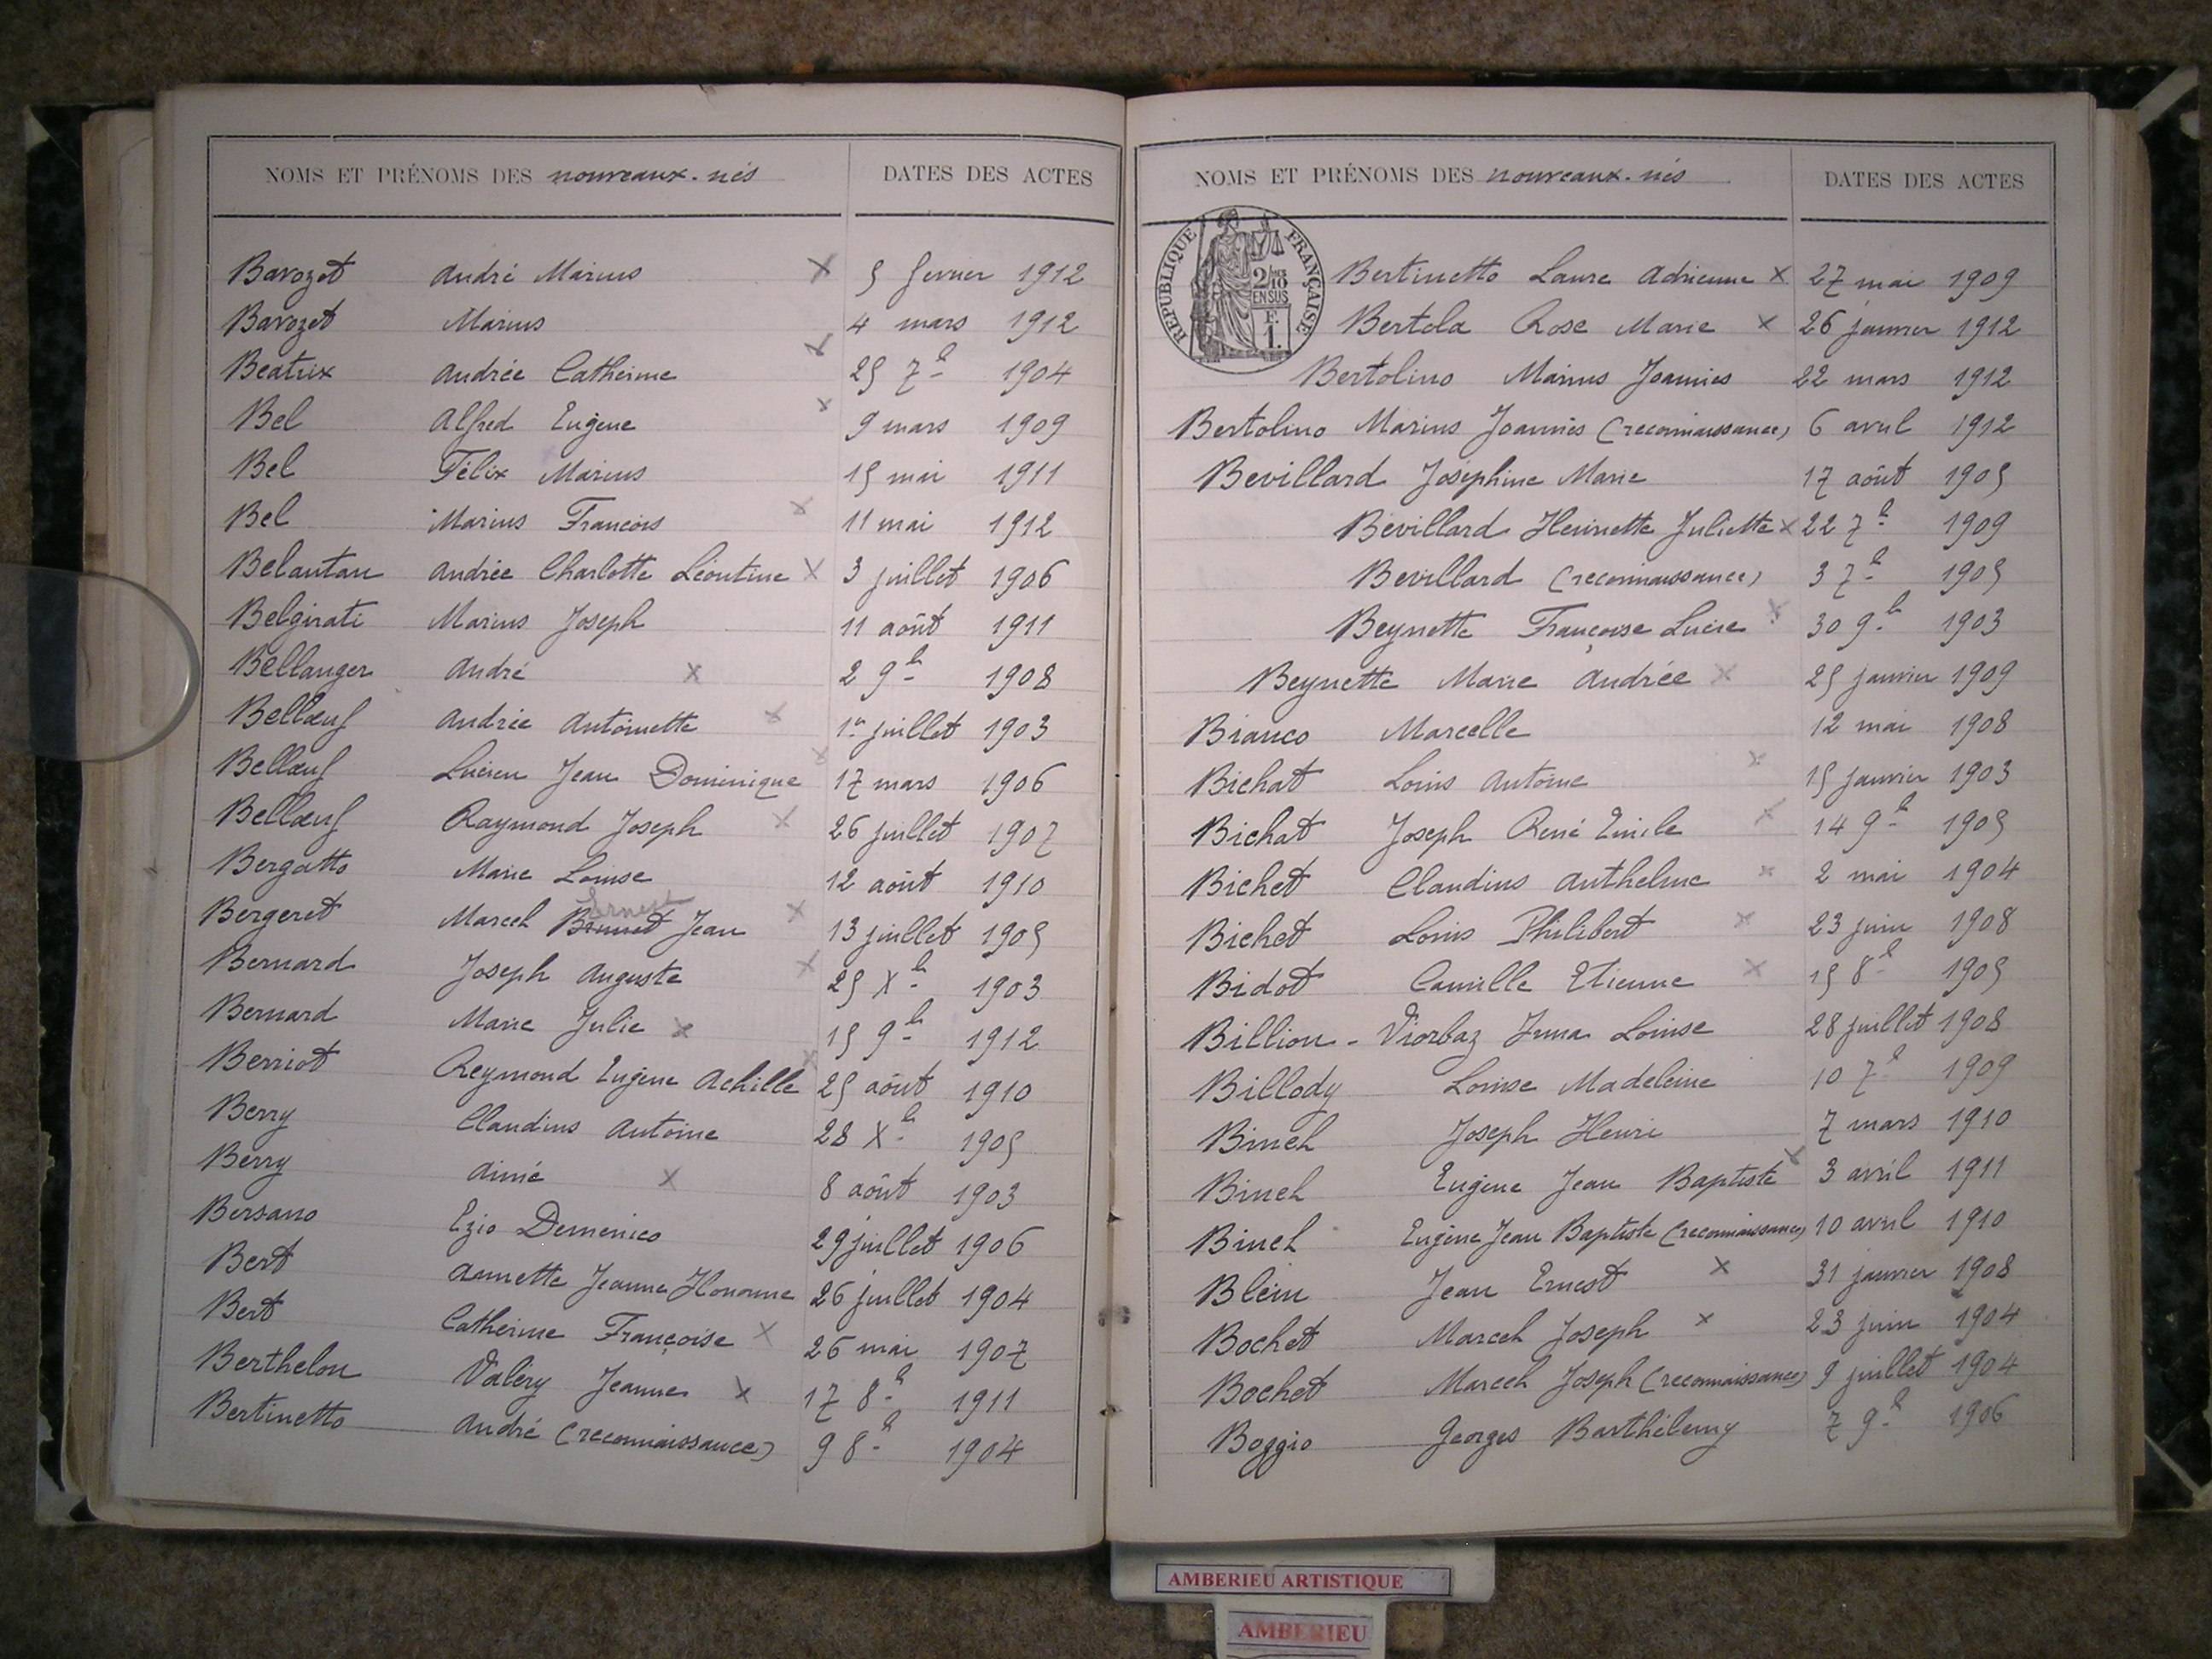 NOMS ET PRÉNOMS DES nouveaux-nés DATES DES ACTES
Bavozet André Marius x 5 fevrier 1912
Bavozet Marius 4 mars 1912
Beatrix Andrée Catherine x 25 7b 1904
Bel Alfred Eugène x 9 mars 1909
Bel Félix Marius 15 mai 1911
Bel Marius François x 11 mai 1912
Belantan Andrée Charlotte Léontine x 3 juillet 1906
Belgirati Marius Joseph 11 août 1911
Bellanger André x 2 9b 1908
Bellœuf Andrée Antoinette x 1er juillet 1903
Bellœuf Lucien Jean Dominique x 17 mars 1906
Bellœuf Raymond Joseph x 26 juillet 1907
Bergatto Marie Louise 12 août 1910
Ernest
Bergeret Marcel Brunet Jean x 13 juillet 1905
Bernard Joseph Auguste x 25 Xb 1903
Bernard Marie Julie x 15 9b 1912
Berriot Reymond Eugène Achille x 25 août 1910
Berry Claudius Antoine 28 Xb 1905
Berry Aimé x 8 août 1903
Bersano Ezio Demenico 29 juillet 1906
Bert Annette Jeanne Honorine 26 juillet 1904
Bert Catherine Françoise x 26 mai 1907
Berthelon Valéry Jeanne x 17 8b 1911
Bertinetto André (reconnaissance) 9 8b 1904
NOMS ET PRÉNOMS DES nouveaux-nés DATES DES ACTES
REPUBLIQUE FRANÇAISE
2/10
EN SUS
F.
1.
Bertinetto Laure Adrienne x 27 mai 1909
Bertola Rose Marie x 26 janvier 1912
Bertolino Marius Joannès 22 mars 1912
Bertolino Marius Joannès (reconnaissance) 6 avril 1912
Bevillard Joséphine Marie 17 août 1905
Bévillard Henriette Juliette x 22 7b 1909
Bevillard (reconnaissance) 3 7b 1905
Beynette Françoise Lucie x 30 9b 1903
Beynette Marie Andrée x 25 janvier 1909
Bianco Marcelle 12 mai 1908
Bichat Louis Antoine x 15 janvier 1903
Bichat Joseph René Emile x 14 9b 1905
Bichet Claudius Anthelme x 2 mai 1904
Bichet Louis Philibert x 23 juin 1908
Bidot Camille Etienne x 15 8b 1905
Billion - Viorbaz Irma Louise 28 juillet 1908
Billody Louise Madeleine 10 7b 1909
Binel Joseph Henri 7 mars 1910
Binel Eugène Jean Baptiste x 3 avril 1911
Binel Eugène Jean Baptiste (reconnaissance) 10 avril 1910
Blein Jean Ernest x 31 janvier 1908
Bochet Marcel Joseph x 23 juin 1904
Bochet Marcel Joseph (reconnaissance) 9 juillet 1904
Boggio Georges Barthélemy 7 9b 1906
AMBERIEU ARTISTIQUE
AMBERIEU